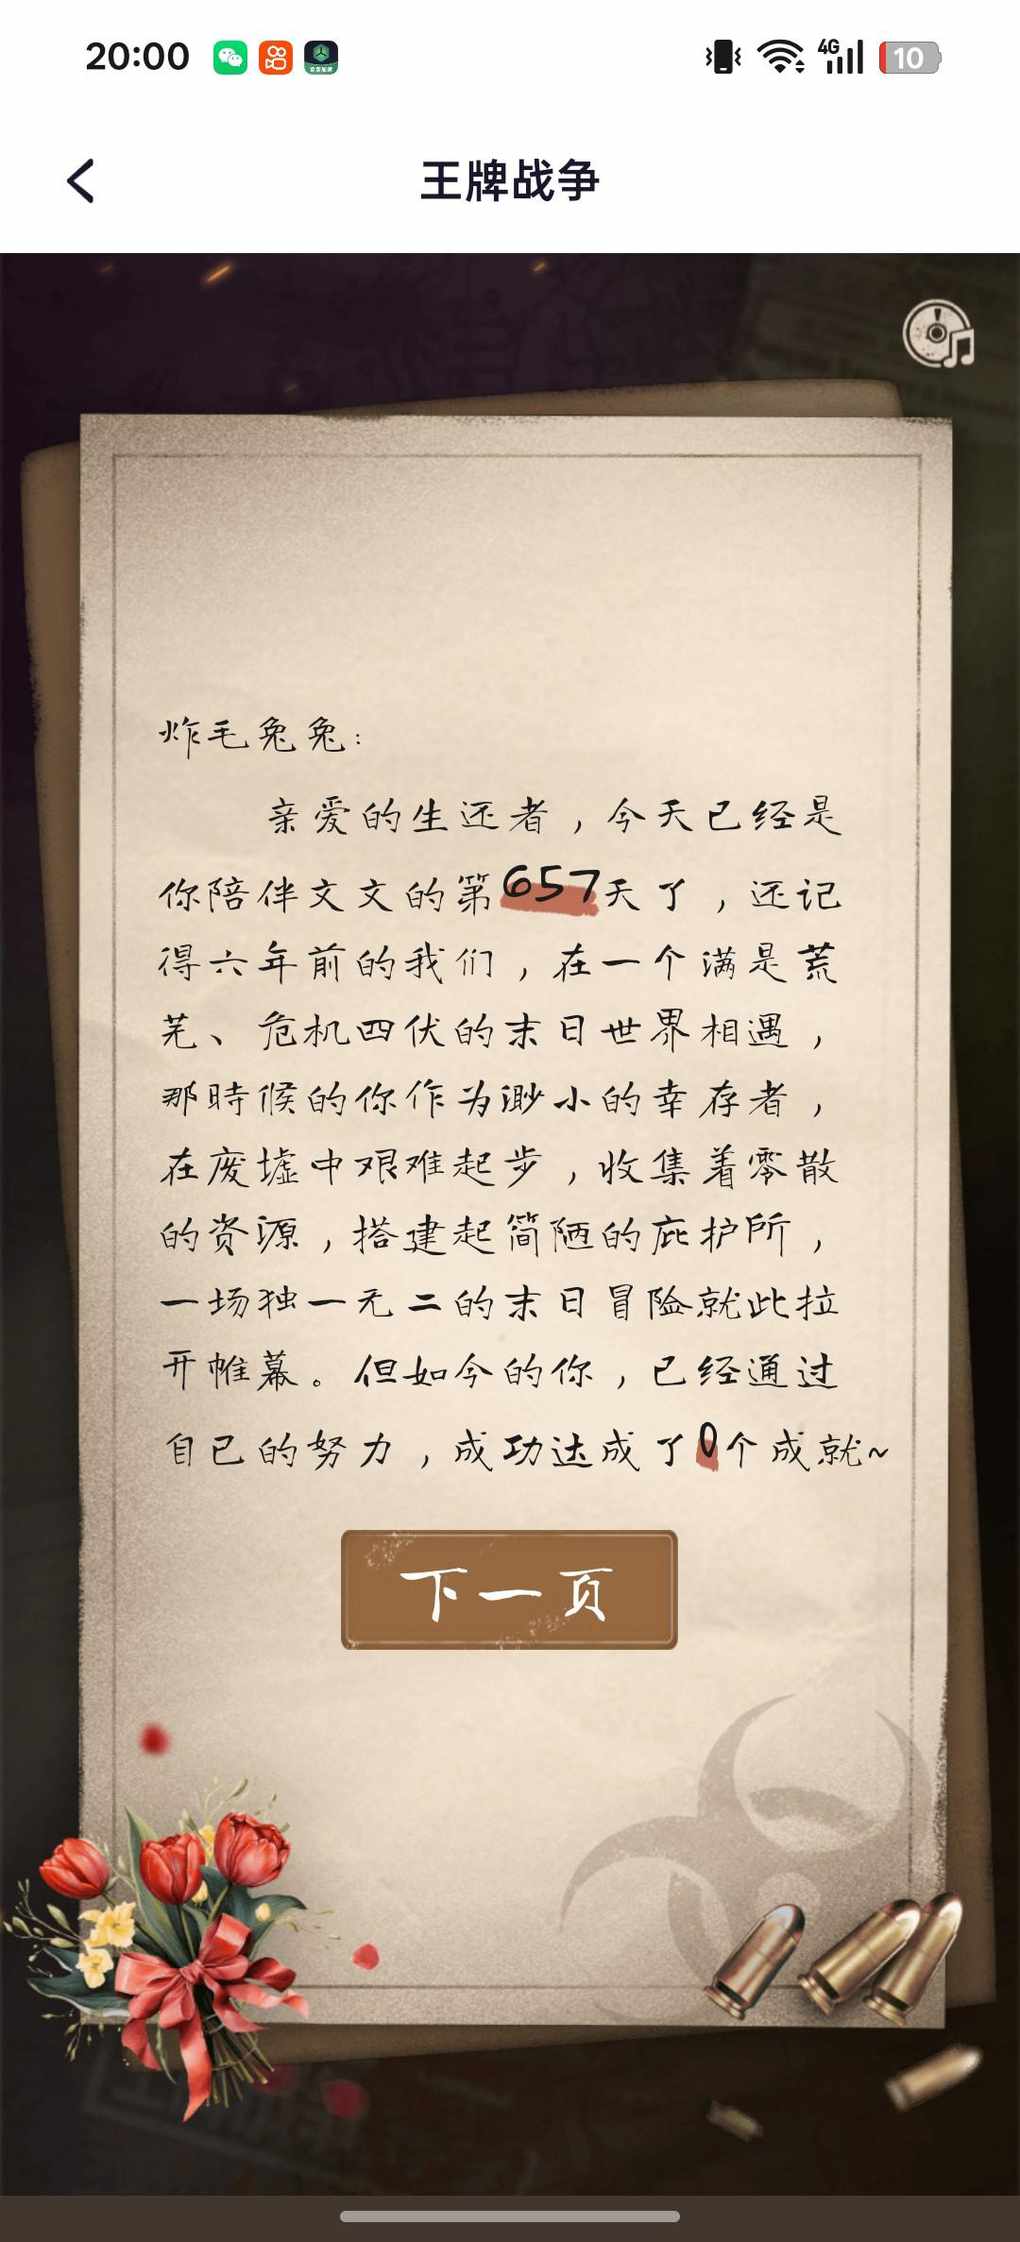 20:00
4G
10
王牌战争
炸毛兔兔：
亲爱的生还者，今天已经是
你陪伴文文的第657天了，还记
得六年前的我们，在一个满是荒
芜、危机四伏的末日世界相遇，
那時候的你作为渺小的幸存者，
在废墟中艰难起步，收集着零散
的资源，搭建起简陋的庇护所，
一场独一无二的末日冒险就此拉
开帷幕。但如今的你，已经通过
自己的努力，成功达成了0个成就~
下一页